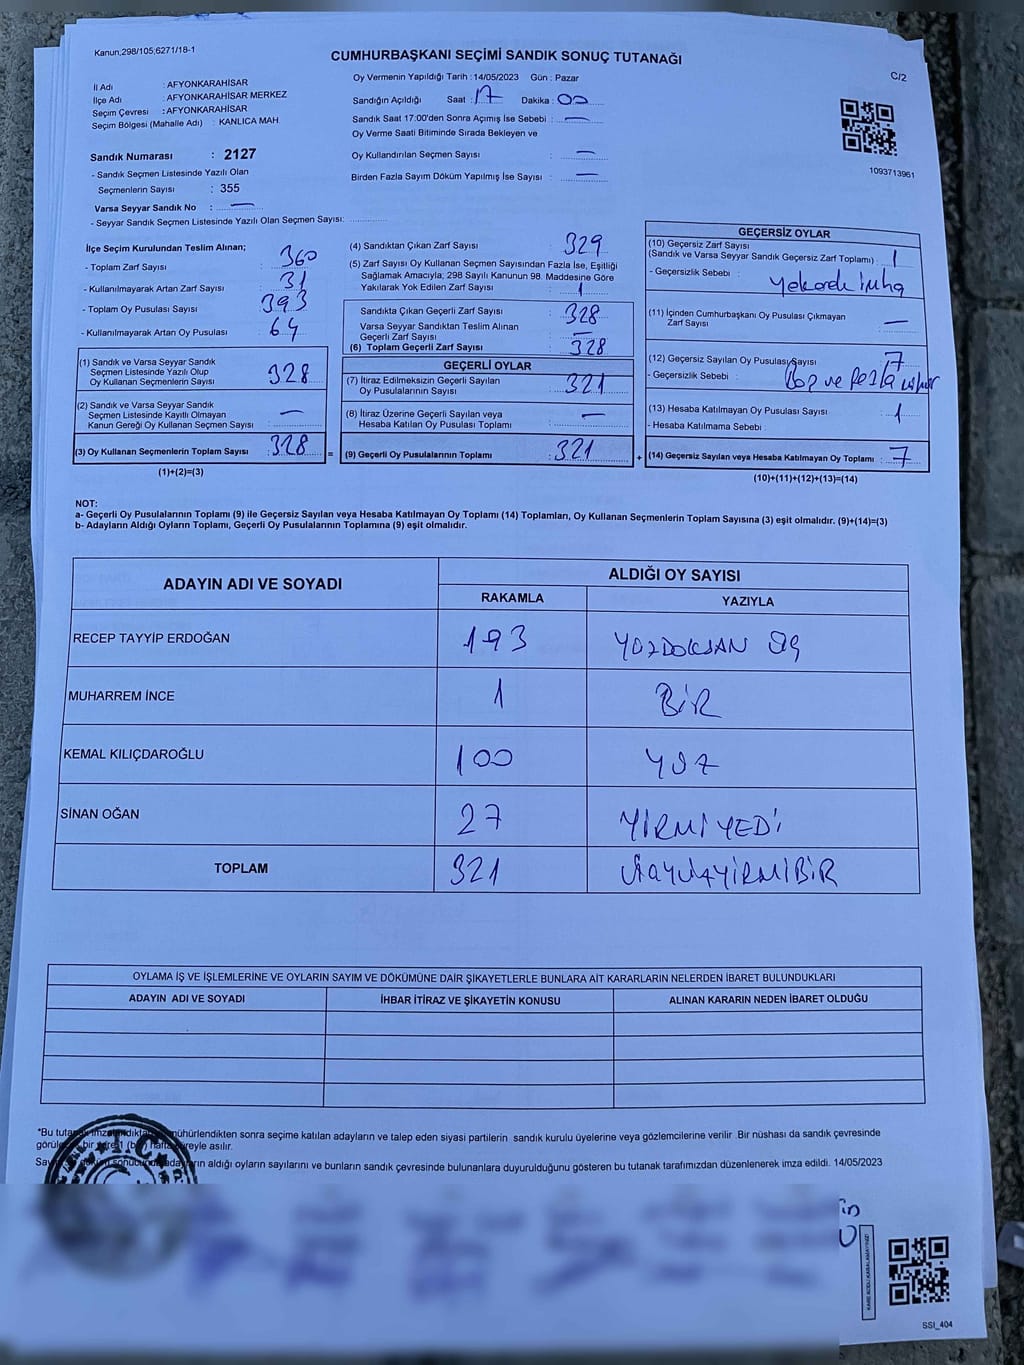 Kanun,298/105,6271/18-1
CUMHURBAŞKANI SEÇİMİ SANDIK SONUÇ TUTANAĞI
C/2
İl Adı : AFYONKARAHİSAR
İlçe Adı : AFYONKARAHİSAR MERKEZ
Seçim Çevresi : AFYONKARAHİSAR
Seçim Bölgesi (Mahalle Adı) : KANLICA MAH.
Sandık Numarası : 2127
- Sandık Seçmen Listesinde Yazılı Olan
Seçmenlerin Sayısı : 355
Varsa Seyyar Sandık No : —
- Seyyar Sandık Seçmen Listesinde Yazılı Olan Seçmen Sayısı:
Oy Vermenin Yapıldığı Tarih : 14/05/2023 Gün : Pazar
Sandığın Açıldığı Saat : 17 Dakika : 00
Sandık Saat 17:00'den Sonra Açımış İse Sebebi : —
Oy Verme Saati Bitiminde Sırada Bekleyen ve
Oy Kullandırılan Seçmen Sayısı : —
Birden Fazla Sayım Döküm Yapılmış İse Sayısı : —
1093713961
İlçe Seçim Kurulundan Teslim Alınan;
- Toplam Zarf Sayısı : 360
- Kullanılmayarak Artan Zarf Sayısı : 31
- Toplam Oy Pusulası Sayısı : 393
- Kullanılmayarak Artan Oy Pusulası : 64
(1) Sandık ve Varsa Seyyar Sandık
Seçmen Listesinde Yazılı Olup
Oy Kullanan Seçmenlerin Sayısı : 328
(2) Sandık ve Varsa Seyyar Sandık
Seçmen Listesinde Kayıtlı Olmayan
Kanun Gereği Oy Kullanan Seçmen Sayısı : —
(3) Oy Kullanan Seçmenlerin Toplam Sayısı : 328
(1)+(2)=(3)
=
(4) Sandıktan Çıkan Zarf Sayısı : 329
(5) Zarf Sayısı Oy Kullanan Seçmen Sayısından Fazla İse, Eşitliği
Sağlamak Amacıyla; 298 Sayılı Kanunun 98. Maddesine Göre
Yakılarak Yok Edilen Zarf Sayısı : 1
Sandıkta Çıkan Geçerli Zarf Sayısı : 328
Varsa Seyyar Sandıktan Teslim Alınan
Geçerli Zarf Sayısı : —
(6) Toplam Geçerli Zarf Sayısı : 328
GEÇERLİ OYLAR
(7) İtiraz Edilmeksizin Geçerli Sayılan
Oy Pusulalarının Sayısı : 321
(8) İtiraz Üzerine Geçerli Sayılan veya
Hesaba Katılan Oy Pusulası Toplamı : —
(9) Geçerli Oy Pusulalarının Toplamı : 321
+
GEÇERSİZ OYLAR
(10) Geçersiz Zarf Sayısı
(Sandık ve Varsa Seyyar Sandık Geçersiz Zarf Toplamı) : 1
- Geçersizlik Sebebi :
(11) İçinden Cumhurbaşkanı Oy Pusulası Çıkmayan
Zarf Sayısı : —
(12) Geçersiz Sayılan Oy Pusulası Sayısı : 7
- Geçersizlik Sebebi :
(13) Hesaba Katılmayan Oy Pusulası Sayısı : 1
- Hesaba Katılmama Sebebi :
(14) Geçersiz Sayılan veya Hesaba Katılmayan Oy Toplamı : 7
(10)+(11)+(12)+(13)=(14)
NOT:
a- Geçerli Oy Pusulalarının Toplamı (9) ile Geçersiz Sayılan veya Hesaba Katılmayan Oy Toplamı (14) Toplamları, Oy Kullanan Seçmenlerin Toplam Sayısına (3) eşit olmalıdır. (9)+(14)=(3)
b- Adayların Aldığı Oyların Toplamı, Geçerli Oy Pusulalarının Toplamına (9) eşit olmalıdır.
ADAYIN ADI VE SOYADI ALDIĞI OY SAYISI
RAKAMLA YAZIYLA
RECEP TAYYİP ERDOĞAN 193 YÜZDOKSAN ÜÇ
MUHARREM İNCE 1 BİR
KEMAL KILIÇDAROĞLU 100 YÜZ
SİNAN OĞAN 27 YİRMİYEDİ
TOPLAM 321 ÜÇYÜZYİRMİBİR
OYLAMA İŞ VE İŞLEMLERİNE VE OYLARIN SAYIM VE DÖKÜMÜNE DAİR ŞİKAYETLERLE BUNLARA AİT KARARLARIN NELERDEN İBARET BULUNDUKLARI
ADAYIN ADI VE SOYADI İHBAR İTİRAZ VE ŞİKAYETİN KONUSU ALINAN KARARIN NEDEN İBARET OLDUĞU
*Bu mühürlendikten sonra seçime katılan adayların ve talep eden siyasi partilerin sandık kurulu üyelerine veya gözlemcilerine verilir .Bir nüshası da sandık çevresinde
bir süreyle asılır.
aldığı oyların sayılarını ve bunların sandık çevresinde bulunanlara duyurulduğunu gösteren bu tutanak tarafımızdan düzenlenerek imza edildi. 14/05/2023
T.C.
KARE KODU KARALAMAYINIZ!
SSI_404